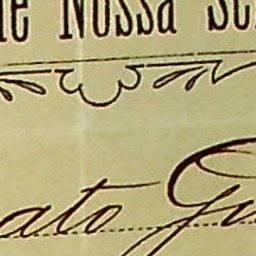 de Nossa Se
ato Gu